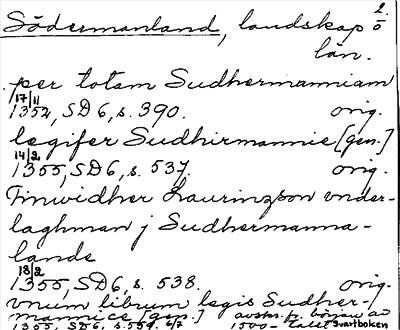 2.
Södermanland, landskap o
län.
per totam Sudhermanniam
17/11
1352, SD 6, s. 390. orig.
legifer Sudhirmannie [gen.]
14/2
1355, SD 6, s. 537. orig.
Finvidher Laurinzson vnder-
laghman j Sudhermanna-
lande
18/2
1355, SD 6, s. 538. orig.
vnum librum legis Sudher-
mannice [gen.] avskr. fr. början av
1355, SD 6, s. 559. 6/7 1500-talet Svartboken